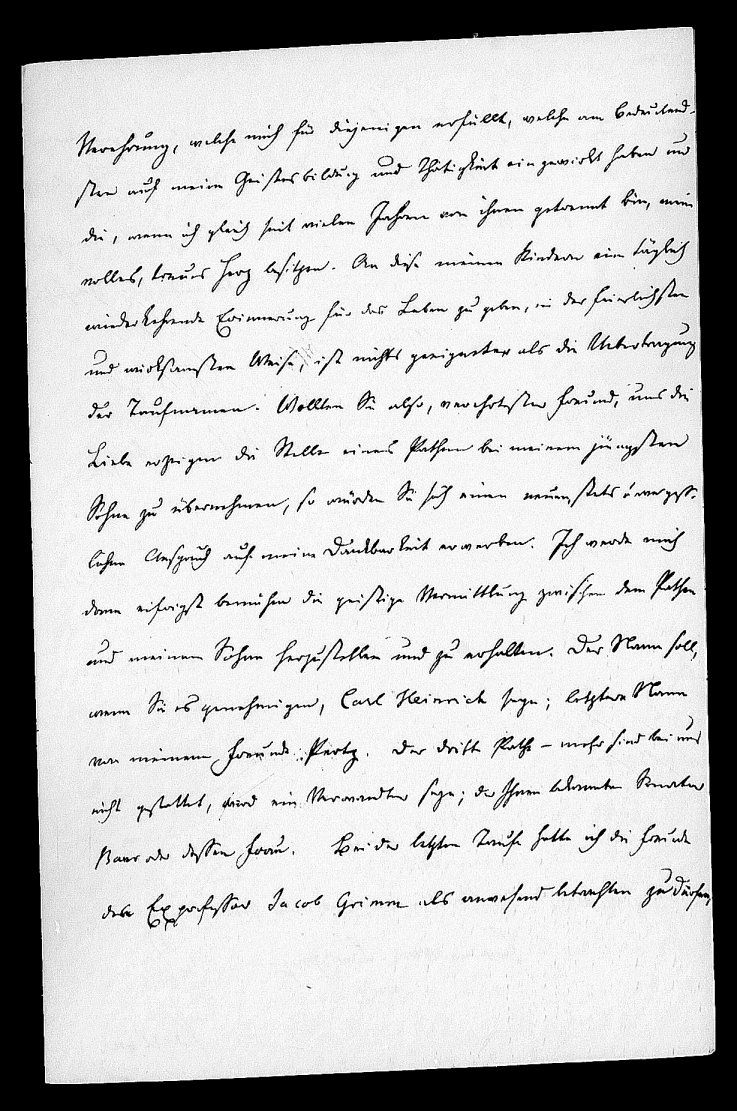 Verehrung, welche mich für diejenigen erfüllt, welche am bedeutend-
sten auf meine Geistesbildung und Thätigkeit eingewirkt haben und
die, wenn ich gleich seit vielen Jahren von ihnen getrennt bin, mein
volles, treues Herz besitzen. An diese meinen Kindern eine täglich
wiederkehrende Erinnerung für das Leben zu geben, in der feierlichsten
und wirksamsten Weise, ist nichts geeigneter als die Uebertragung
der Taufnamen. Wollten Sie also, verehrtester Freund, uns die
Liebe erzeigen die Stelle eines Pathen bei meinem jüngsten
Sohne zu übernehmen, so würden Sie sich einen neuen, stets unvergeß-
lichen Anspruch auf meine Dankbarkeit erwerben. Ich werde mich
dann eifrigst bemühen die geistige Vermittlung zwischen dem Pathen
und meinem Sohne herzustellen und zu erhalten. Der Name soll,
wenn Sie es genehmigen, Carl Heinrich seyn; letzterer Name
von meinem Freunde Pertz. Der dritte Pathe – mehr sind bei uns
nicht gestattet, wird ein Verwandter seyn; der Ihnen bekannte Senator
oder dessen Frau. Bei der letzten Taufe hatte ich die Freude
den Exprofessor Jacob Grimm als anwesend betrachten zu dürfen,